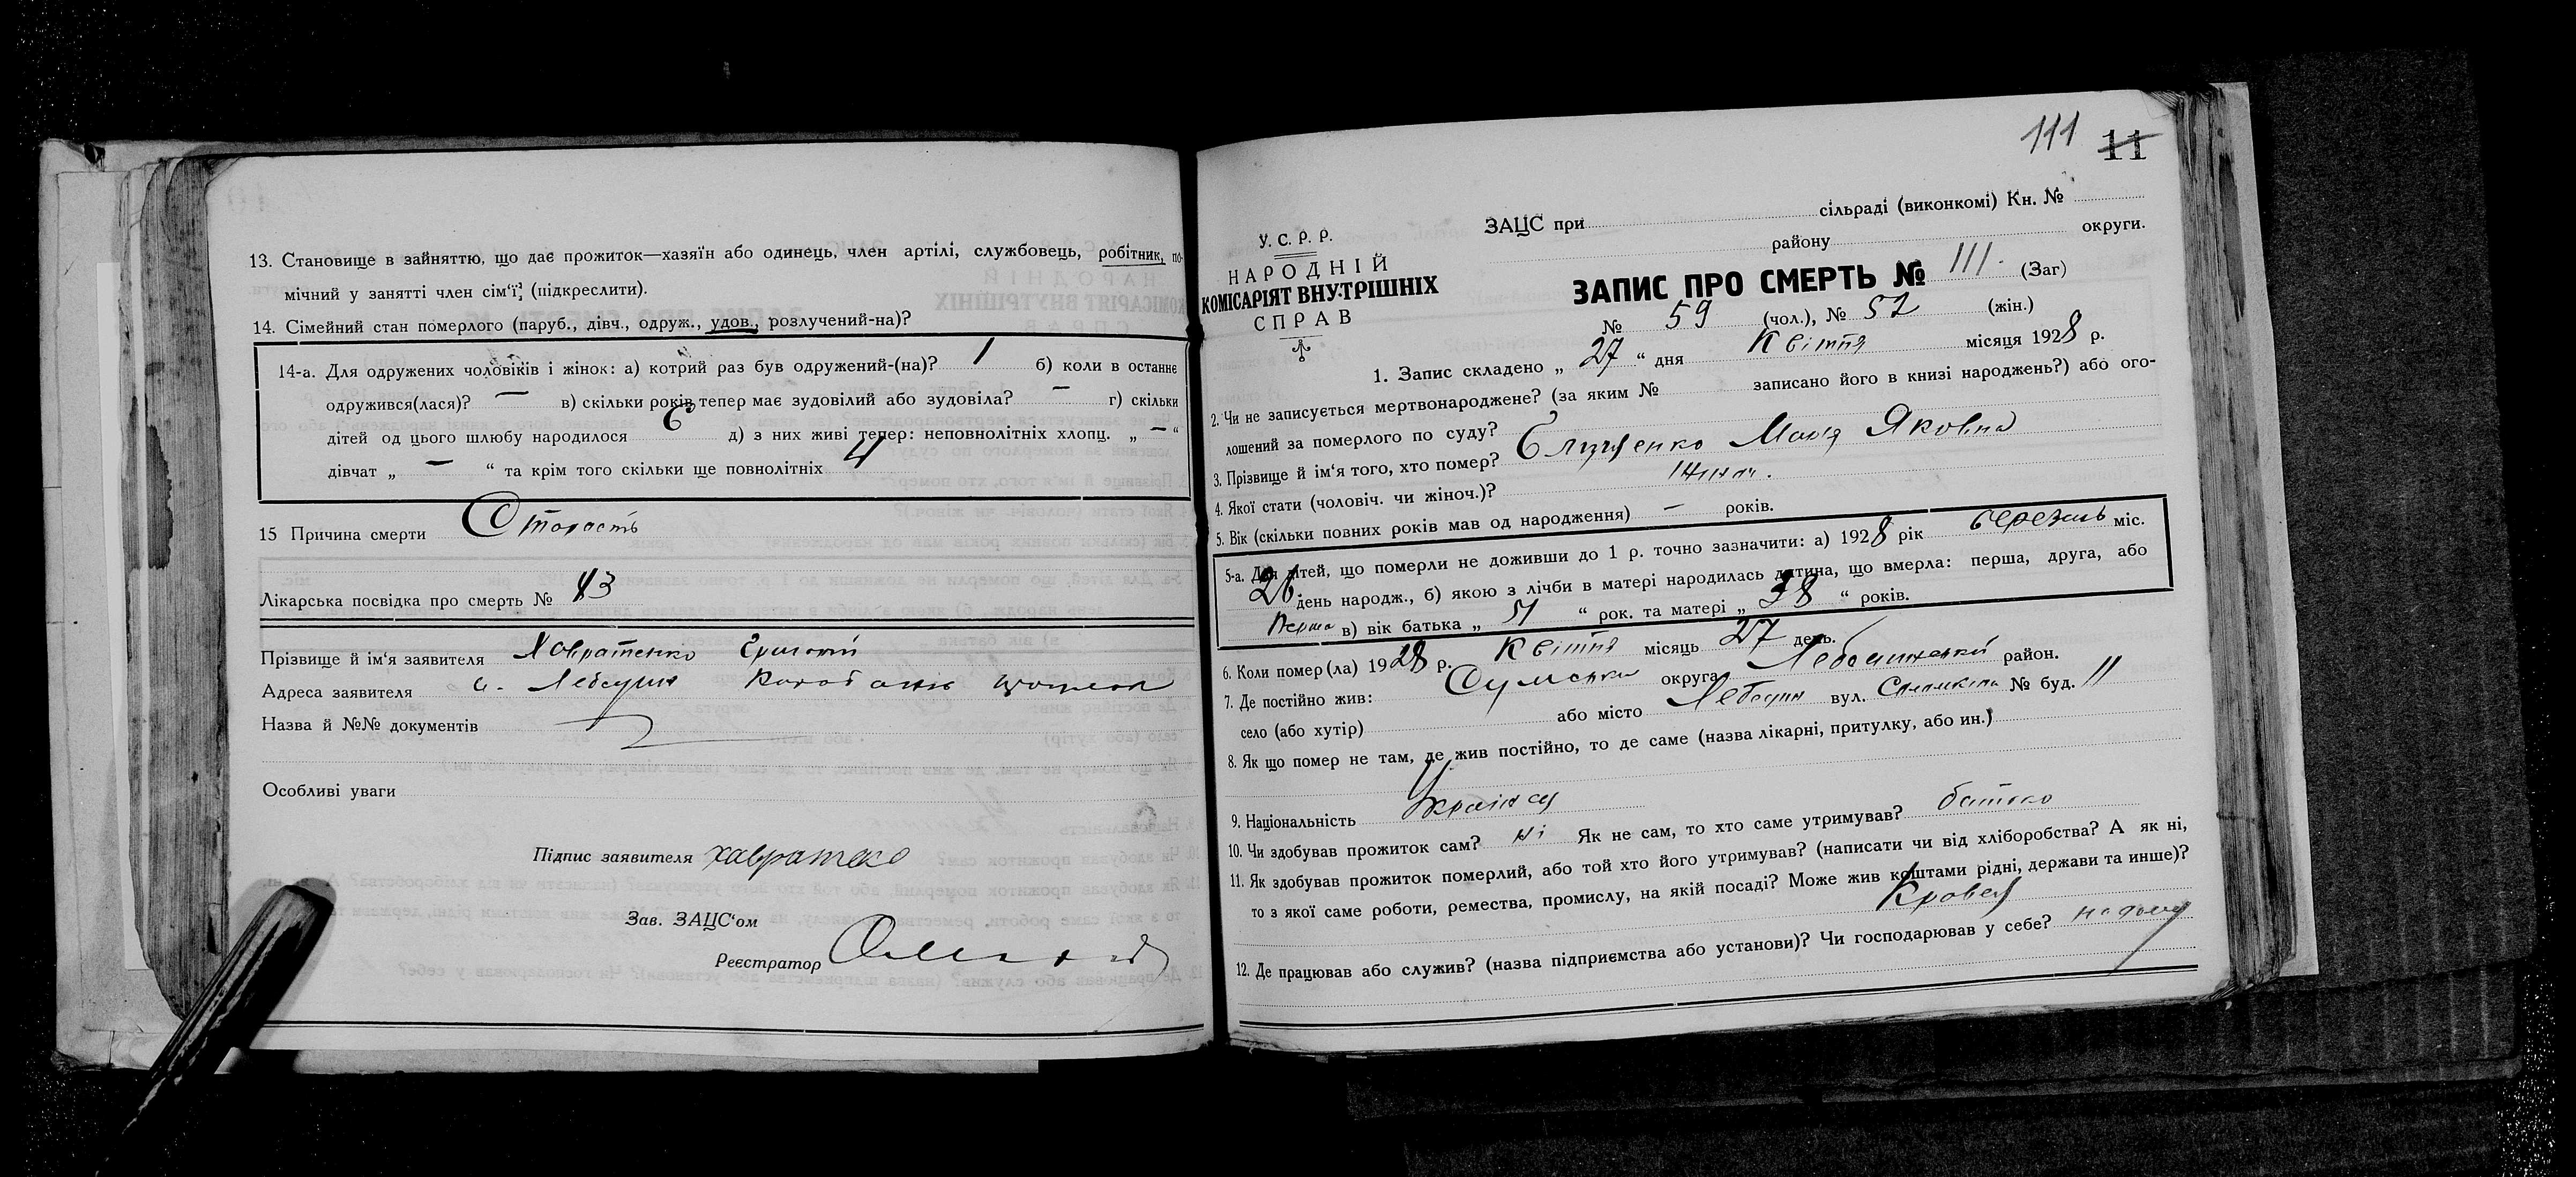 13. Становище в зайняттю, що дає прожиток—хазяїн або одинець, член артілі, службовець, робітник, по-
мічний у занятті член сім'ї, (підкреслити).
14. Сімейний стан померлого (паруб., дівч., одруж., удов., розлучений-на)?
14-а. Для одружених чоловіків і жінок: а) котрий раз був одружений-(на)? 1 б) коли в останнє
одружився(лася)? — в) скільки років тепер має зудовілий або зудовіла? — г) скільки
дітей од цього шлюбу народилося 6 д) з них живі тепер: неповнолітніх хлопц. „ — “
дівчат „ — “ та крім того скільки ще повнолітніх 4
15 Причина смерти Старость
Лікарська посвідка про смерть № 43
Прізвище й ім'я заявителя Хавратенко Григорій
Адреса заявителя Лебедин
Назва й №№ документів
Особливі уваги
Підпис заявителя хавратеко
Зав. ЗАЦС'ом
Реєстратор
111 11
У. С. Р. Р.
НАРОДНІЙ
КОМІСАРІЯТ ВНУТРІШНІХ
СПРАВ
ЗАЦС при сільраді (виконкомі) Кн. №
району округи.
ЗАПИС ПРО СМЕРТЬ № 111. (Заг)
№ 59 (чол.), № 52 (жін.)
1. Запис складено „ 27 “ дня Квітня місяця 1928 р.
2. Чи не записується мертвонароджене? (за яким № записано його в книзі народжень?) або ого-
лошений за померлого по суду?
3. Прізвище й ім'я того, хто помер? Єлизенко Марія Яковна
4. Якої стати (чоловіч. чи жіноч.)? жіноч.
5. Вік (скільки повних років мав од народження) — років.
5-а. Для дітей, що померли не доживши до 1 р. точно зазначити: а) 1928 рік березень міс.
26 день народж., б) якою з лічби в матері народилась дитина, що вмерла: перша, друга, або
перша в) вік батька „ 51 “ рок. та матері „ 38 “ років.
6. Коли помер(ла) 1928 р. Квітня місяць 27 день.
7. Де постійно жив: Сумська округа Лебединський район.
село (або хутір) або місто Лебедин вул. № буд. 11
8. Як що помер не там, де жив постійно, то де саме (назва лікарні, притулку, або ин.)
9. Національність Україн
10. Чи здобував прожиток сам? ні Як не сам, то хто саме утримував? батько
11. Як здобував прожиток померлий, або той хто його утримував? (написати чи від хліборобства? А як ні,
то з якої саме роботи, ремества, промислу, на якій посаді? Може жив коштами рідні, держави та инше)?
Кравец
12. Де працював або служив? (назва підприємства або установи)? Чи господарював у себе? на дому